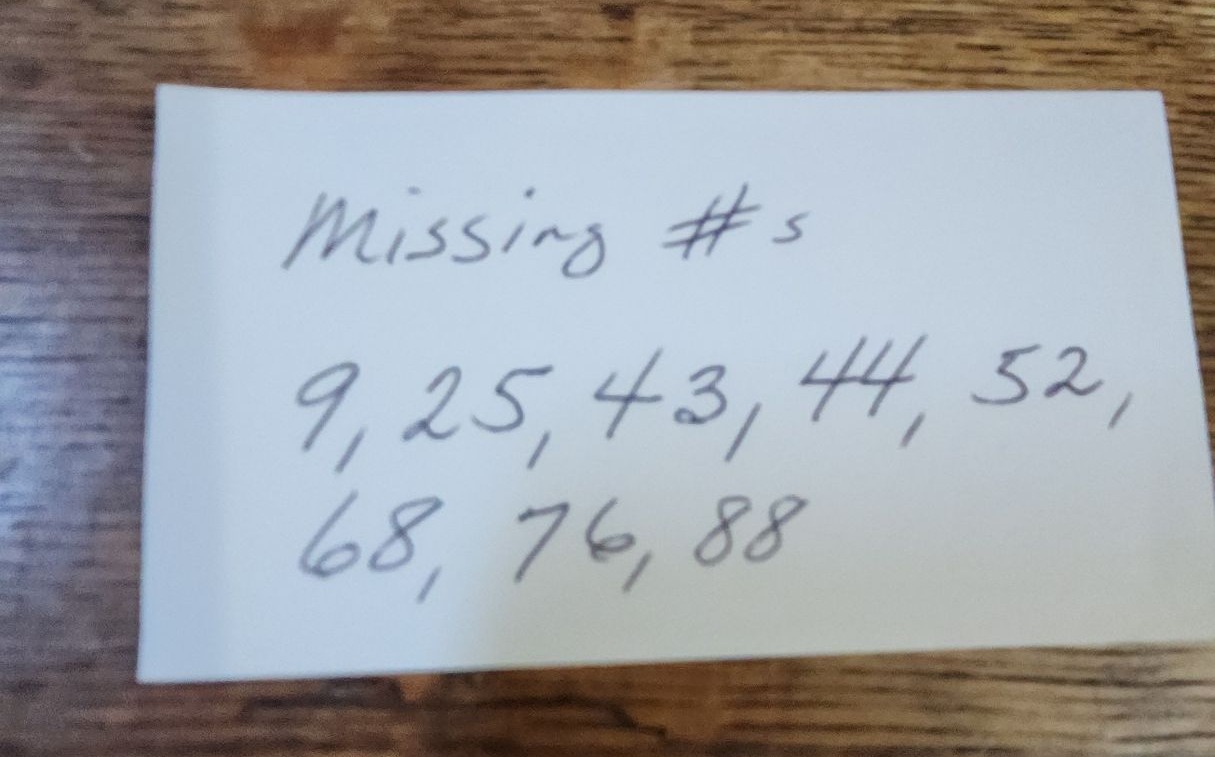 Missing #s
9, 25, 43, 44, 52,
68, 76, 88